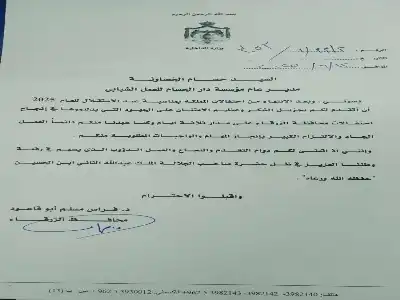 بسم الله الرحمن الرحيم
وزارة الداخلية
السيد حسام الخصاونة
مدير عام مؤسسة دار الحسام للعمل الشبابي
وبعد الانتهاء من احتفالات المملكة بمناسبة عيد الاستقلال للعام 2025
أن أتقدم لكم بجزيل الشكر وعظيم الامتنان على الجهود التي بذلتموها في إنجاح
احتفالات محافظة الزرقاء على مدار ثلاثة أيام وكما عهدنا منكم دائماً العمل
الجاد والالتزام الكبير بإنجاز المهام والواجبات المطلوبة منكم
وإنني إذ أتمنى لكم دوام التقدم والنجاح والعمل الدؤوب الذي يسهم في رفعة
وطننا العزيز في ظل حضرة صاحب الجلالة الملك عبدالله الثاني ابن الحسين
"حفظه الله ورعاه"
واقبلوا الاحترام
د. فراس مسلم أبو قاعود
محافظ الزرقاء